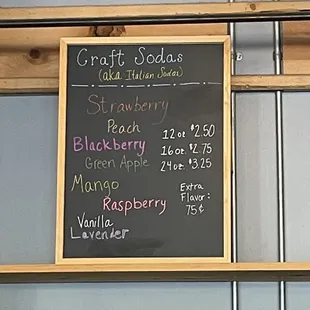 Craft Sodas
(aka Italian Sodas)
Strawberry
Peach
Blackberry
Green Apple
Mango
Raspberry
Vanilla
Lavender
12 oz $2.50
16 oz $2.75
24 oz $3.25
Extra
Flavor:
75¢